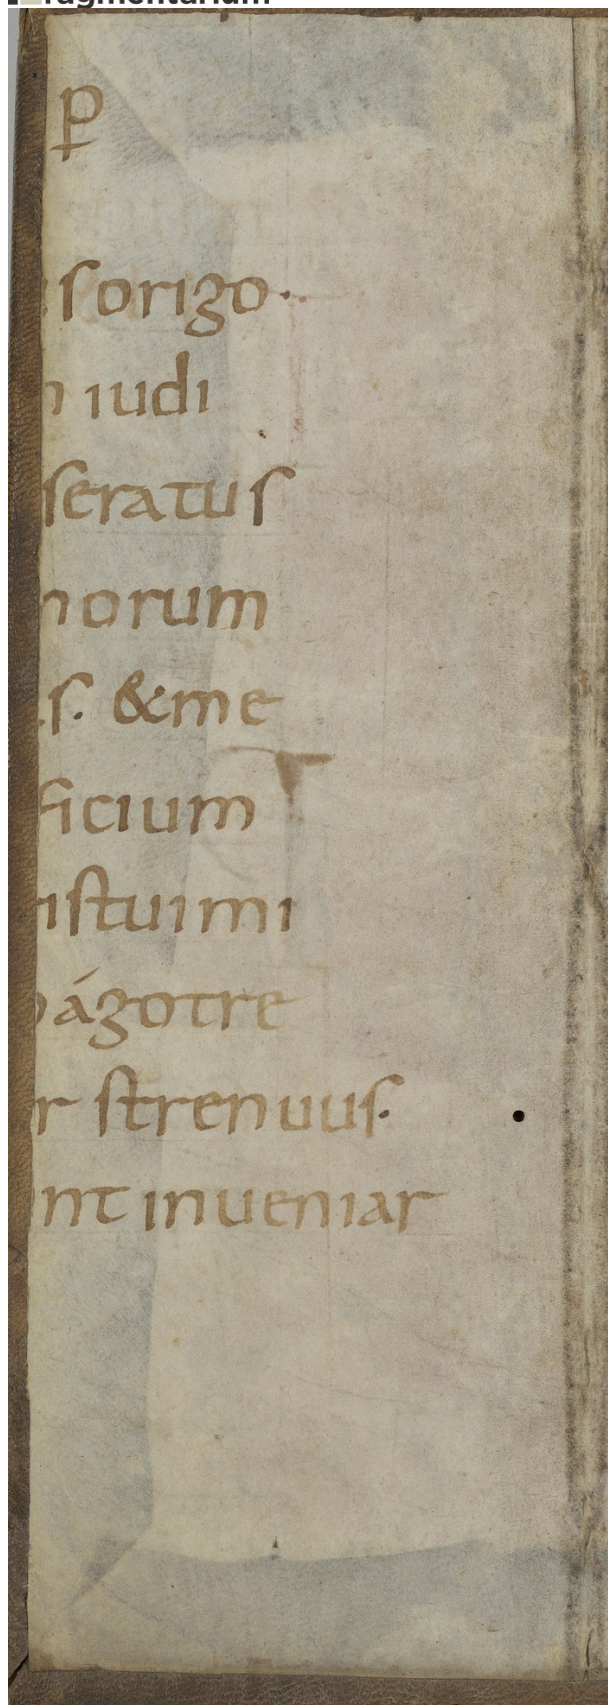 ꝑ
s origo·
n iudi
seratus
norum
s. &me
ficium
istuimi
ágotre
r strenuus.
nt inueniar